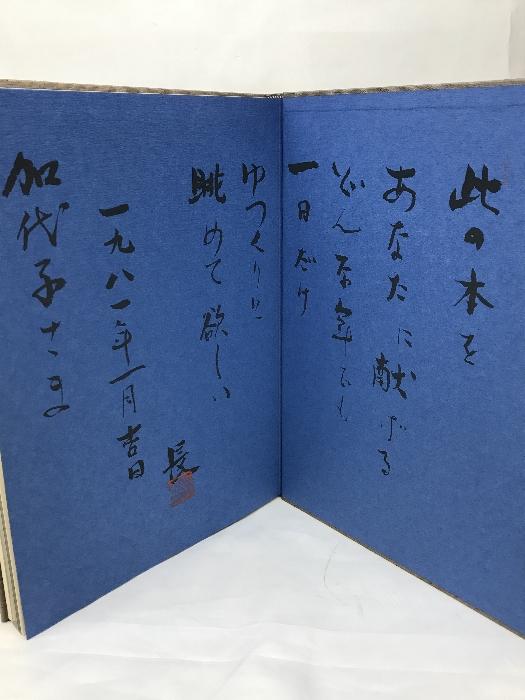 此の本を
あなたに献げる
どんな事でも
一日だけ
ゆっくりに
眺めて欲しい
一九八一年一月吉日
長
加代子さま